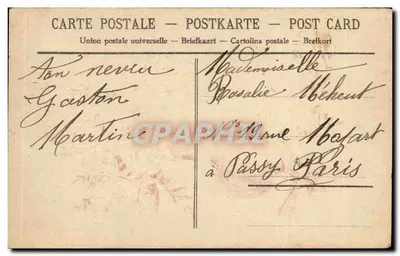 CARTE POSTALE — POSTKARTE — POST CARD
Union postale universelle — Briefkaart — Cartolina postale — Brefkort
Ton neveu
Gaston
Martin
Mademoiselle
Rosalie Méheut
Mozart
à Passy Paris
CPARAMA.COM